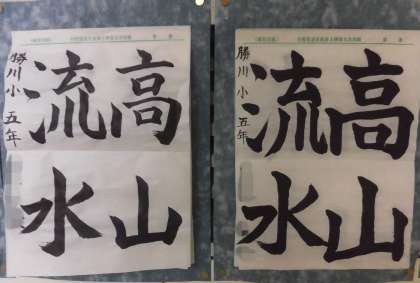 高山
流水
勝川小 五年
高山
流水
勝川小 五年